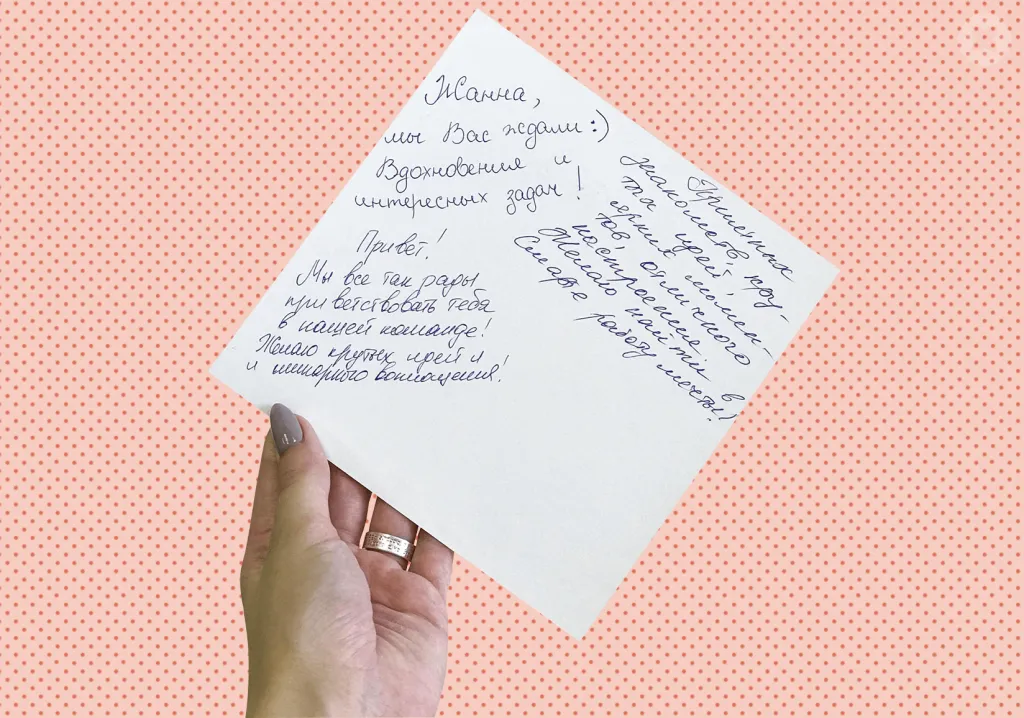 Жанна,
мы Вас ждали :)
Вдохновения и
интересных задач!
Привет!
Мы все так рады
приветствовать тебя
в нашей команде!
Желаю крутых идей и
и шикарного воплощения!
Приятных
знакомств, кру-
тых идей,
ярких момен-
тов, отличного
настроения
Желаю найти в
Смарте работу мечты!